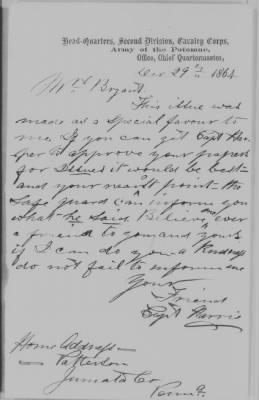 Head-Quarters, Second Division, Cavalry Corps,
Army of the Potomac,
Office, Chief Quartermaster,
Dec 29th 1864
Mrs Bryant
This issue was
made as a special favour to
me. If you can get Capt Har
per to approve your papers
for Issues it would be best
and your nearest point - the
Safe guard can inform you
what he said Believe me ever
a friend to you and yours
if I can do you a Kindness
do not fail to inform me
Your
Friend
Capt Harris
Home Address
Patterson
Juniata Co
Penna.